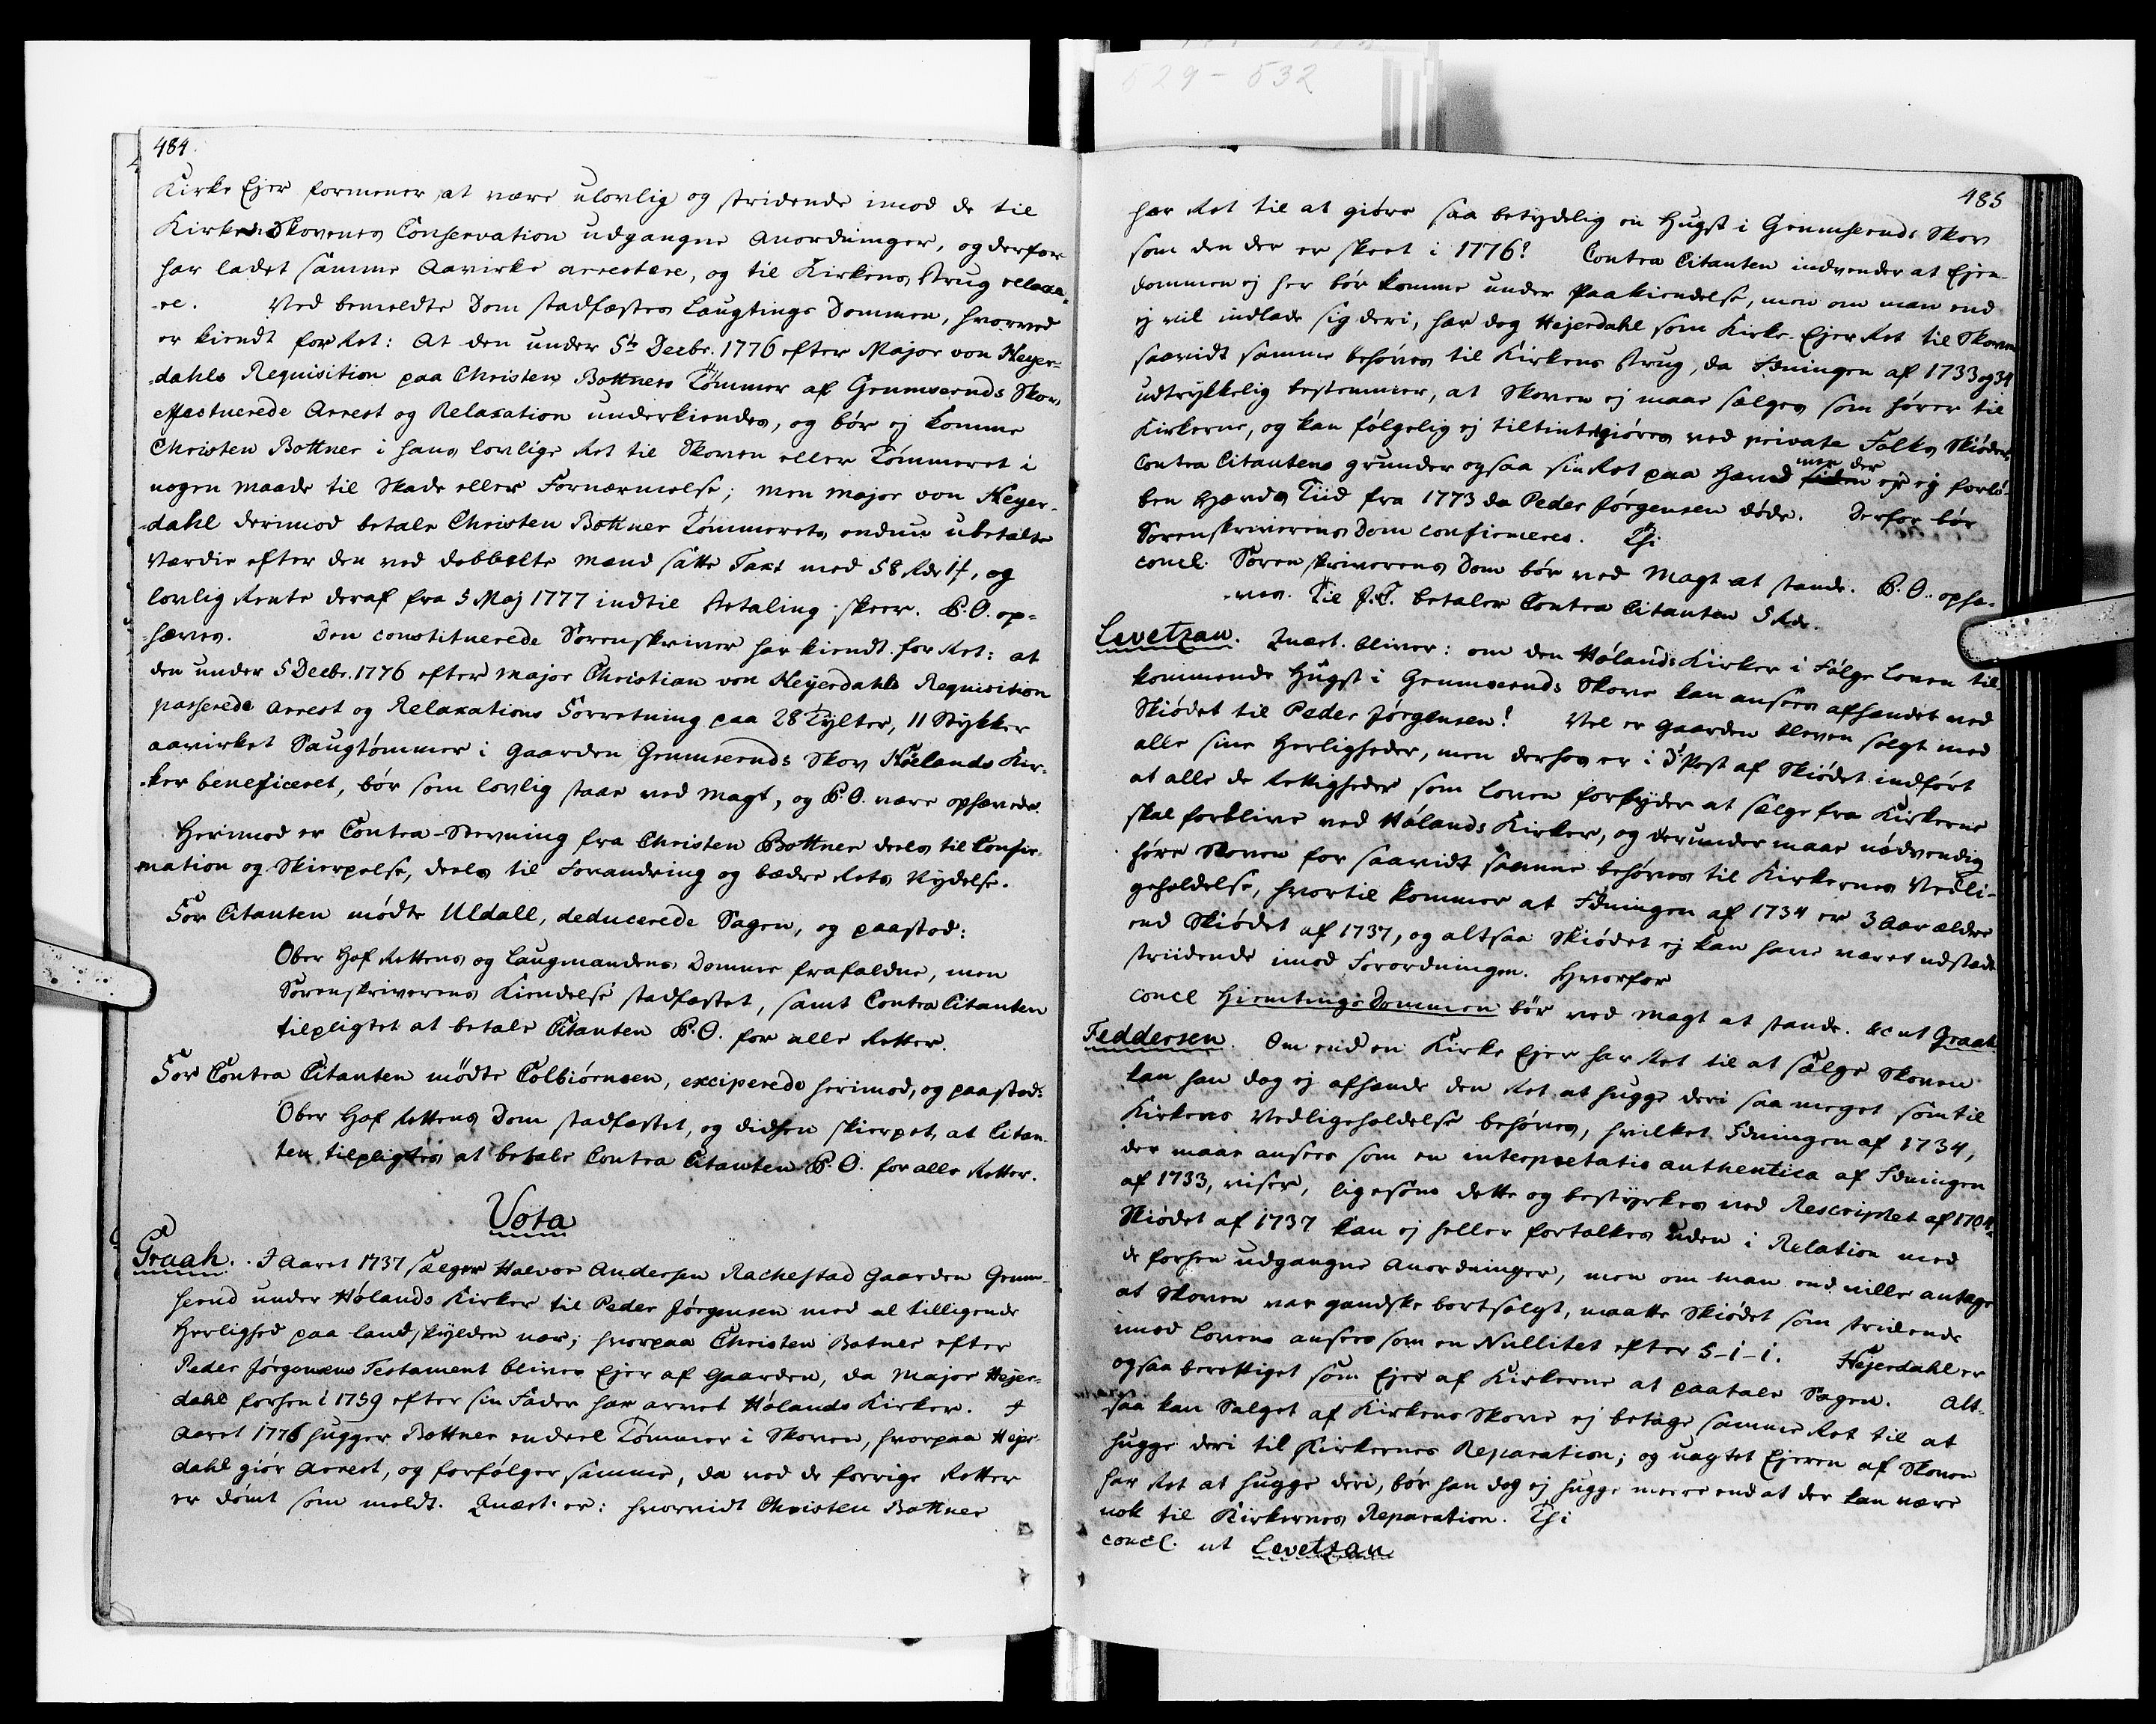 529-532
484.
Kirke Ejer formener, at være ulovlig og stridende imod de til
Kirke Skovenes Conservation udgangne Anordninger, og derfor
har ladet samme Aavirke arrestere, og til Kirkens Brug relaxe-
-re. Ved bemeldte Dom stadfæstes Laugtings Dommen, hvorved
er kiendt for Ret: At den under 5te Decbr. 1776 efter Major von Heyer-
-dahls Requisition paa Christen Bottners Tømmer af Gemmsernds Skov
effectuerede Arrest og Relaxation underkiendes, og bør ej komme
Christen Bottner i hans lovlige Ret til Skoven eller Tømmeret i
nogen Maade til Skade eller Fornærmelse; men Major von Heyer-
-dahl derimod betale Christen Bottner Tømmerets endnu ubetalte
Værdie efter den ved dobbelte Mænd satte Taxt med 58 Rdr 1 f, og
lovlig Rente deraf fra 5 Maj 1777 indtil Betaling skeer. P.O. op-
-hæves. Den constituerede Sorenskriver har kiendt for Ret: at
den under 5 Decbr. 1776 efter Major Christian von Heyerdahls Requisition
passerede Arrest og Relaxations Forretning paa 28 Tylter, 11 Stykker
aavirket Saugtømmer i Gaarden Gemmsernds Skov Hølands Kir-
-ker beneficeret, bør som lovlig staae ved Magt, og P.O. være ophævede.
Herimod er Contra-Stevning fra Christen Bottner deels til Confir-
mation og Skierpelse, deels til Forandring og bædre Rets Nydelse.
For Citanten mødte Uldall, deducerede Sagen, og paastod:
Ober Hof Rettens og Laugmandens Domme frafaldne, men
Sorenskriverens Kiendelse stadfæstet, samt Contra Citanten
tilpligtet at betale Citanten P.O. for alle Retter.
For Contra Citanten mødte Colbiørnsen, exciperede herimod, og paastod:
Ober Hof Rettens Dom stadfæstet, og didhen skierpet, at Citan-
ten tilpligtes at betale Contra Citanten P.O. for alle Retter.
Vota
Graah. I Aaret 1737 sælger Halvor Andersen Rachestad Gaarden Gemm-
sernd under Hølands Kirker til Peder Jørgensen med al tilligende
Herlighed paa Landskylden nær; hvorpaa Christen Botner efter
Peder Jørgensens Testament bliver Ejer af Gaarden, da Major Hejer-
dahl forhen i 1759 efter sin Fader har arvet Hølands Kirker. I
Aaret 1776 hugger Bottner endeel Tømmer i Skoven, hvorpaa Hejer-
dahl giør Arrest, og forfølger samme, da ved de forrige Retter
er dømt som meldt. Quæst. er: hvorvidt Christen Bottner
485
har Ret til at giøre saa betydelig en Hugst i Gemmsernds Skov
som den der er skeet i 1776? Contra Citanten indvender at Ejen-
dommen ej her bør komme under Paakiendelse, men om man end
ej vil indlade sig deri, har dog Hejerdahl som Kirke-Ejer Ret til Skoven
saavidt samme behøves til Kirkens Brug, da Fdningen af 1733 og 34
udtrykkelig bestemmer, at Skoven ej maae sælges som hører til
Kirkerne, og kan følgelig ej tilintetgiøres ved private Folks Skiøder.
Contra Citanten grunder ogsaa sin Ret paa Hævd men der er ej forlø-
ben Hævds Tiid fra 1773 da Peder Jørgensen døde. Derfor bør
Sorenskriverens Dom confirmeres. Thi
concl. Sorenskriverens Dom bør ved Magt at stande. P.O. ophæ-
-ves. Til J.C. betaler Contra Citanten 5 Rdr.
Levetzau. Quæst. bliver: om den Hølands Kirker i Følge Loven til-
kommende Hugst i Gemmsernds Skove kan ansees afhændet ved
Skiødet til Peder Jørgensen? Vel er Gaarden bleven solgt med
alle sine Herligheder, men derhos er i 3 Post af Skiødet indført
at alle de Rettigheder som Loven forbyder at sælge fra Kirkerne
skal forblive ved Hølands Kirker, og derunder maae nødvendig
høre Skoven for saavidt samme behøves til Kirkernes Vedli-
geholdelse, hvortil kommer at Fdningen af 1734 er 3 Aar ældre
end Skiødet af 1737, og altsaa Skiødet ej kan have været udstædt
striidende imod Forordningen. Hvorfor
concl. Hiemtings Dommen bør ved Magt at stande. &c ut Graah.
Feddersen. Om end en Kirke Ejer har Ret til at sælge Skoven
kan han dog ej afhænde den Ret at hugge deri saa meget som til
Kirkens Vedligeholdelse behøves, hvilket Fdningen af 1734,
der maae ansees som en interpretatio authentica af Fdningen
af 1733, viser, ligesom dette og bestyrkes ved Rescriptet af 1704.
Skiødet af 1737 kan ej heller fortolkes uden i Relation med
de forhen udgangne Anordninger, men om man end ville antage
at Skoven var gandske bortsolgt, maatte Skiødet som stridende
imod Lovens ansees som en Nullitet efter 5-1-1. Hejerdahl er
ogsaa berettiget som Ejer af Kirkerne at paatale Sagen. Alt-
saa kan Salget af Kirkens Skove ej betage samme Ret til at
hugge deri til Kirkernes Reparation; og uagtet Ejeren af Skoven
har Ret at hugge deri, bør han dog ej hugge meere end at der kan være
nok til Kirkernes Reparation. Thi
concl. ut Levetzau